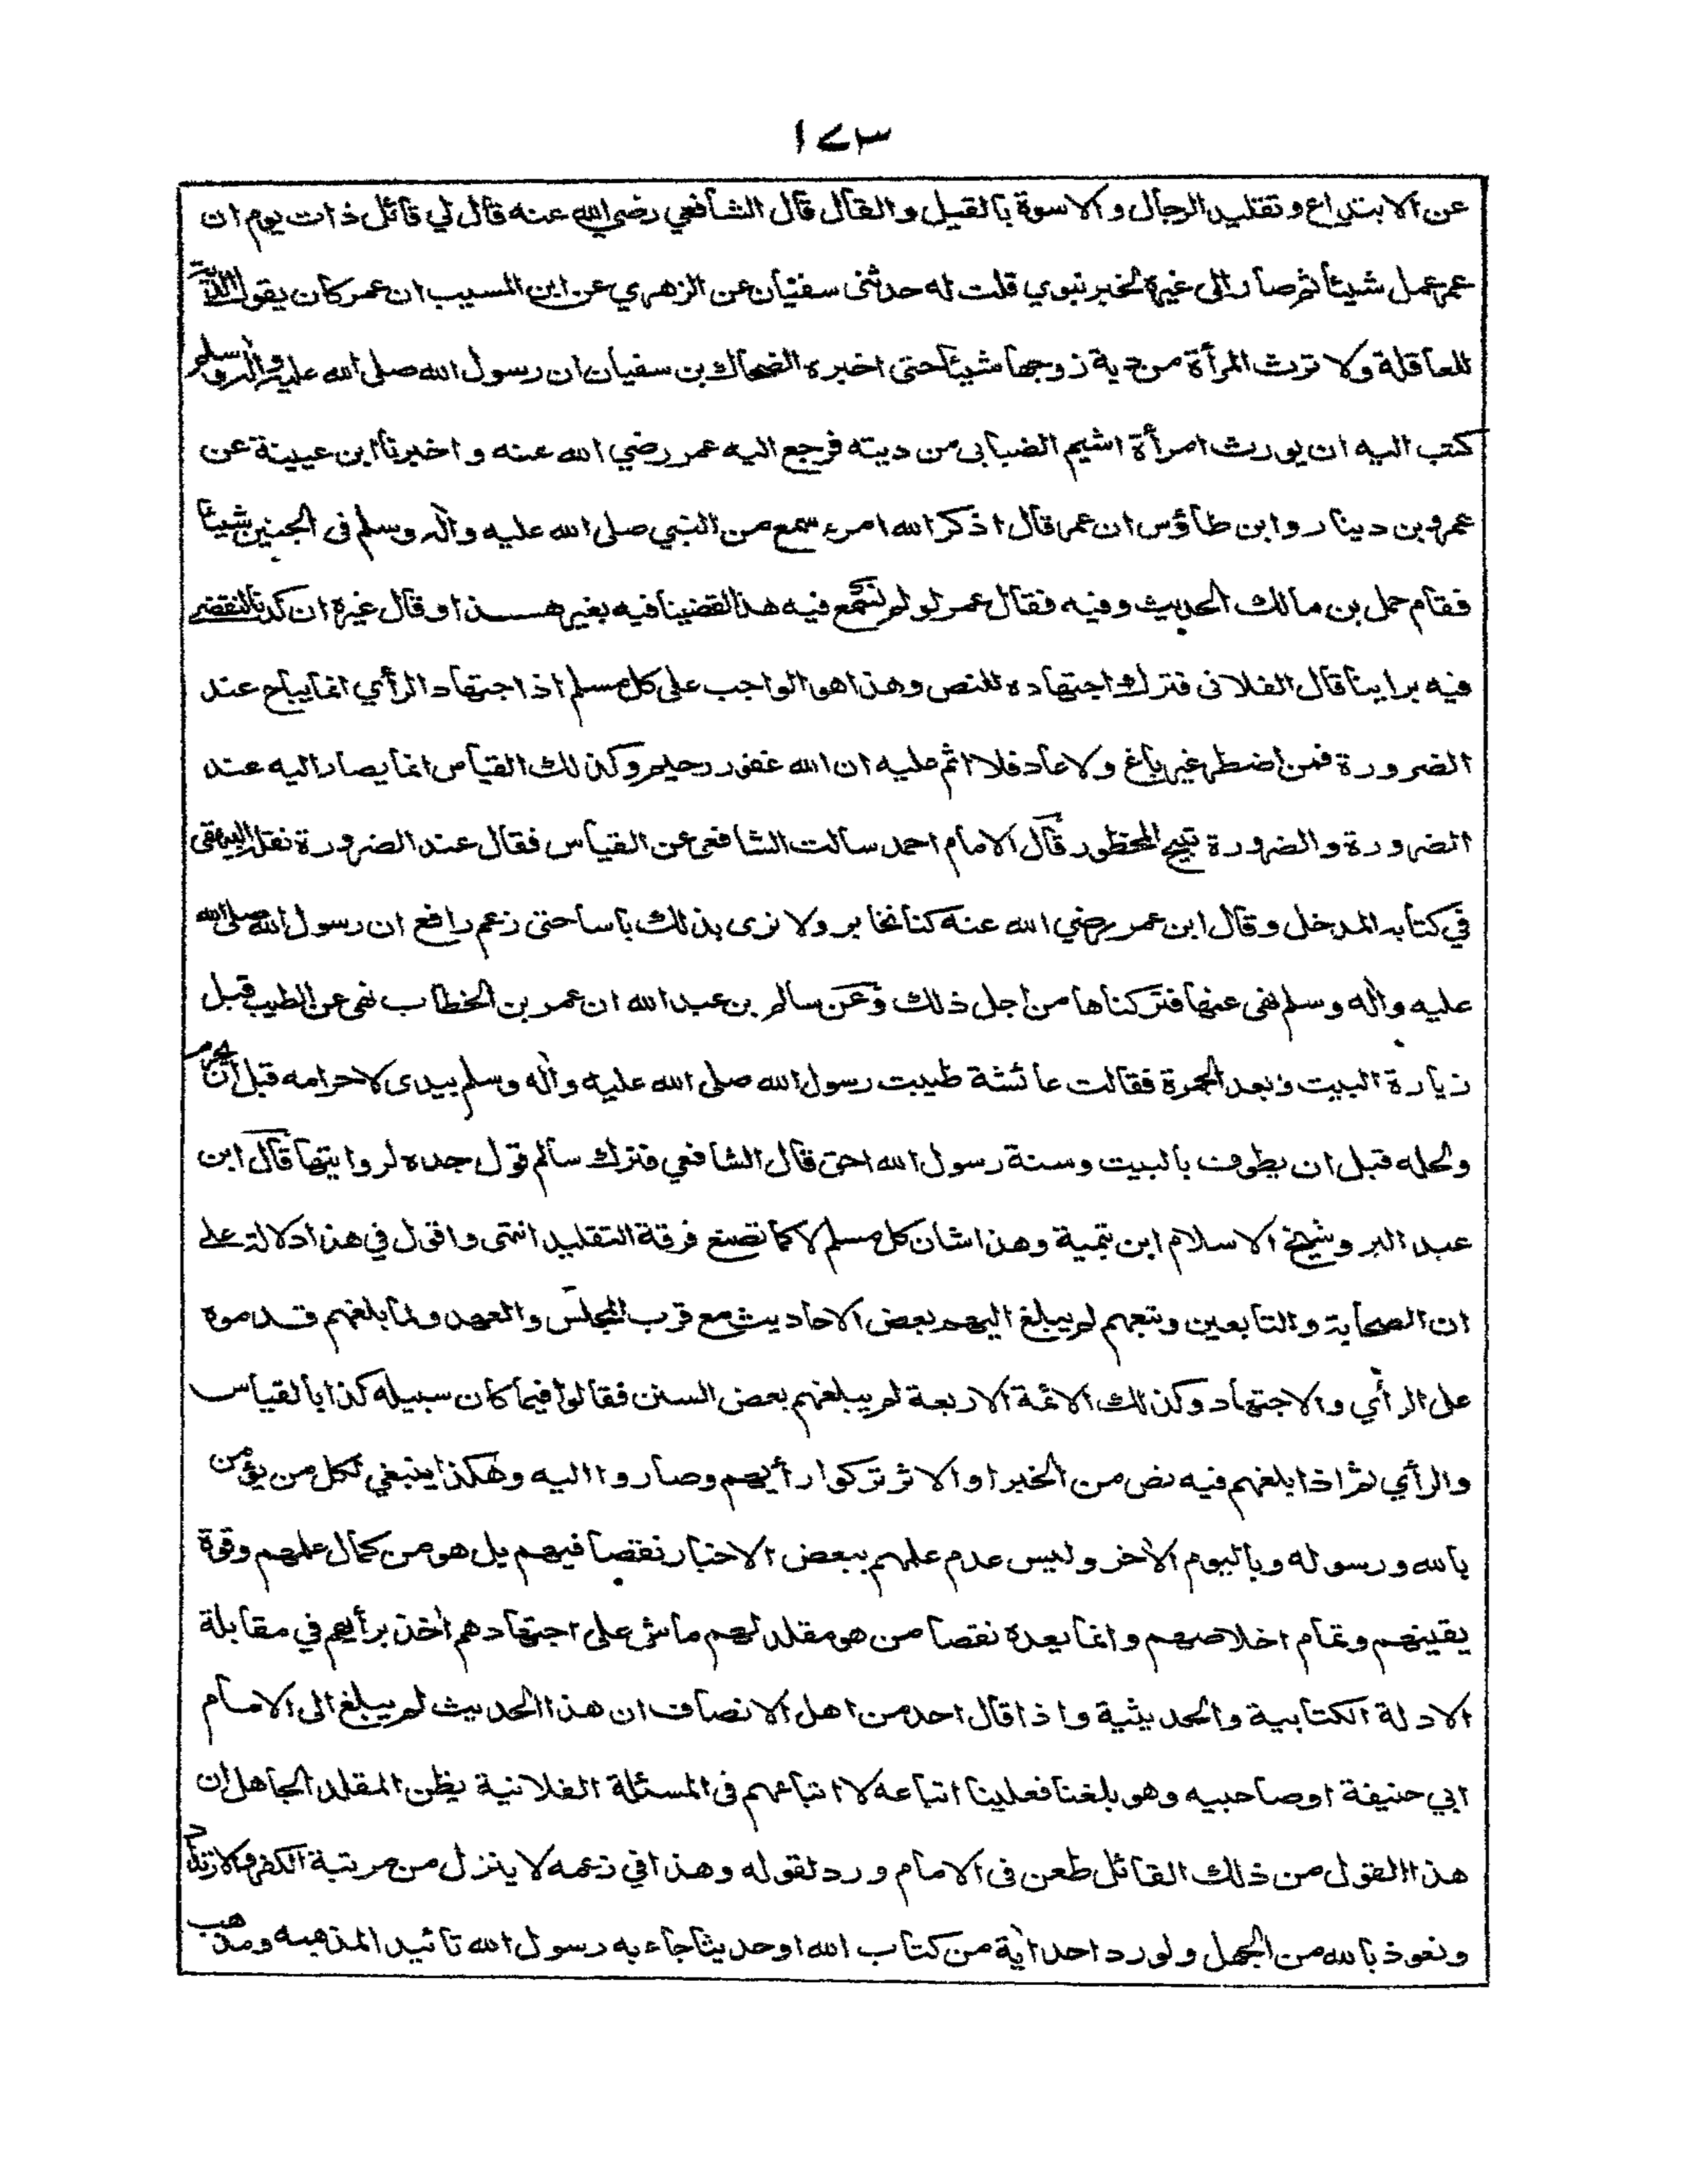 ١٧٣
عن الابتداع و تقليد الرجال و الاسوة بالقيل و القال قال الشافعي رضي الله عنه قال لي قائل ذات يوم ان
عمر عمل شيئا ثم صار الى غيره لخبر نبوي قلت له حدثنى سفيان عن الزهري عن ابن المسيب ان عمر كان يقول الدية
للعاقلة ولا ترث المرأة من دية زوجها شيئا حتى اخبره الضحاك بن سفيان ان رسول الله صلى الله عليه واله وسلم
كتب اليه ان يورث امرأة اشيم الضبابى من ديته فرجع اليه عمر رضي الله عنه و اخبرنا ابن عيينة عن
عمرو بن دينار و ابن طاؤس ان عمر قال اذكر الله امرء سمع من النبي صلى الله عليه وآله وسلم فى الجنين شيئا
فقام حمل بن مالك الحديث وفيه فقال عمر لو لم نسمع فيه هذا لقضينا فيه بغير هذا و قال غيره ان كدنا لنقضى
فيه براينا قال الفلانى فترك اجتهاده للنص وهذا هو الواجب على كل مسلم اذ اجتهاد الرأي انما يباح عند
الضرورة فمن اضطر غير باغ ولا عاد فلا اثم عليه ان الله غفور رحيم وكذلك القياس انما يصار اليه عند
الضرورة والضرورة تبيح المحظور قال الامام احمد سالت الشافعى عن القياس فقال عند الضرورة نقله البيهقى
في كتابه المدخل وقال ابن عمر رضي الله عنه كنا نخابر ولا نرى بذلك باسا حتى زعم رافع ان رسول الله صلى الله
عليه وآله وسلم نهى عنها فتركناها من اجل ذلك وعن سالم بن عبد الله ان عمر بن الخطاب نهى عن الطيب قبل
زيارة البيت وبعد الجمرة فقالت عائشة طيبت رسول الله صلى الله عليه وآله وسلم بيدى لاحرامه قبل ان يحرم
ولحله قبل ان يطوف بالبيت وسنة رسول الله احق قال الشافعي فترك سالم قول جده لروايتها قال ابن
عبد البر وشيخ الاسلام ابن تيمية وهذا شان كل مسلم لا كما تصنع فرقة التقليد انتهى واقول في هذا دلالة على
ان الصحابة والتابعين وتبعهم لم يبلغ اليهم بعض الاحاديث مع قرب المجلس والعهد ولما بلغهم قدموه
على الرأي والاجتهاد وكذلك الائمة الاربعة لم يبلغهم بعض السنن فقالوا فيما كان سبيله كذا بالقياس
والرأي ثم اذا بلغهم فيه نص من الخبر او الاثر تركوا رأيهم وصاروا اليه وهكذا ينبغي لكل من يؤمن
بالله ورسوله وباليوم الآخر وليس عدم علمهم ببعض الاخبار نقصا فيهم بل هو من كمال علمهم وقوة
يقينهم وتمام اخلاصهم وانما يعده نقصا من هو مقلد لهم ماش على اجتهادهم اخذ برأيهم في مقابلة
الادلة الكتابية والحديثية واذا قال احد من اهل الانصاف ان هذا الحديث لم يبلغ الى الامام
ابي حنيفة او صاحبيه وهو بلغنا فعلينا اتباعه لا اتباعهم فى المسئلة الفلانية يظن المقلد الجاهل ان
هذا القول من ذلك القائل طعن فى الامام ورد لقوله وهذا في زعمه لا ينزل من مرتبة الكفر والارتداد
ونعوذ بالله من الجهل ولو رد احد اٰية من كتاب الله او حديثا جاء به رسول الله تائيد المذهبه ومذهب